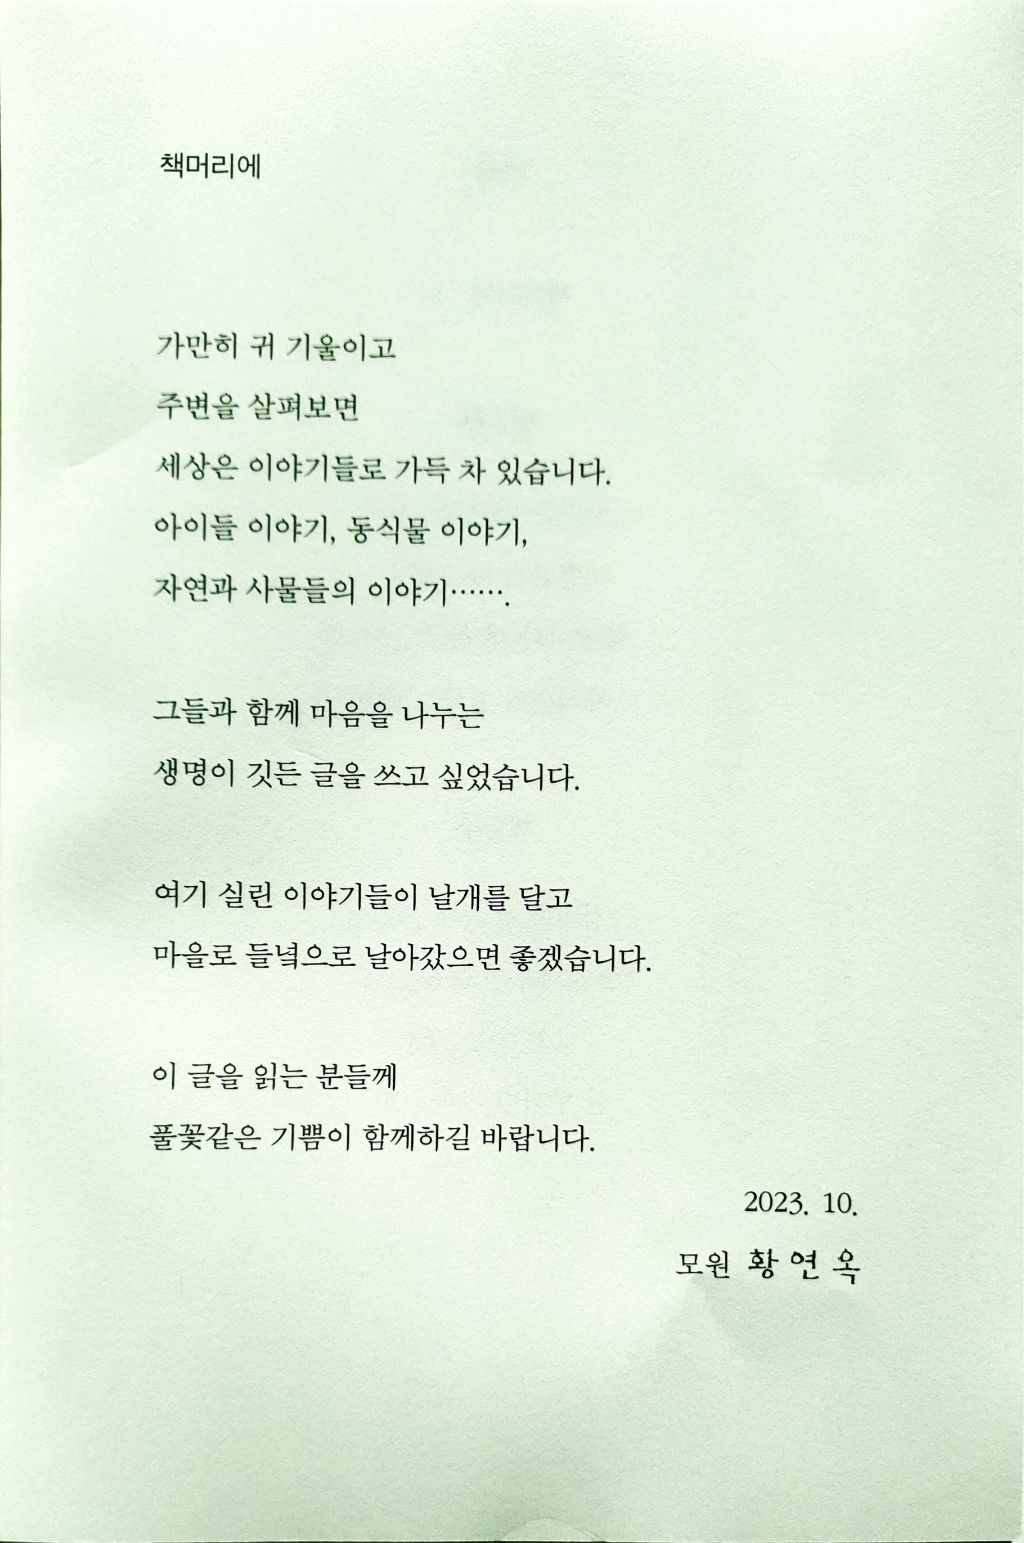 책머리에
가만히 귀 기울이고
주변을 살펴보면
세상은 이야기들로 가득 차 있습니다.
아이들 이야기, 동식물 이야기,
자연과 사물들의 이야기…….
그들과 함께 마음을 나누는
생명이 깃든 글을 쓰고 싶었습니다.
여기 실린 이야기들이 날개를 달고
마을로 들녘으로 날아갔으면 좋겠습니다.
이 글을 읽는 분들께
풀꽃같은 기쁨이 함께하길 바랍니다.
2023. 10.
모원 황연옥